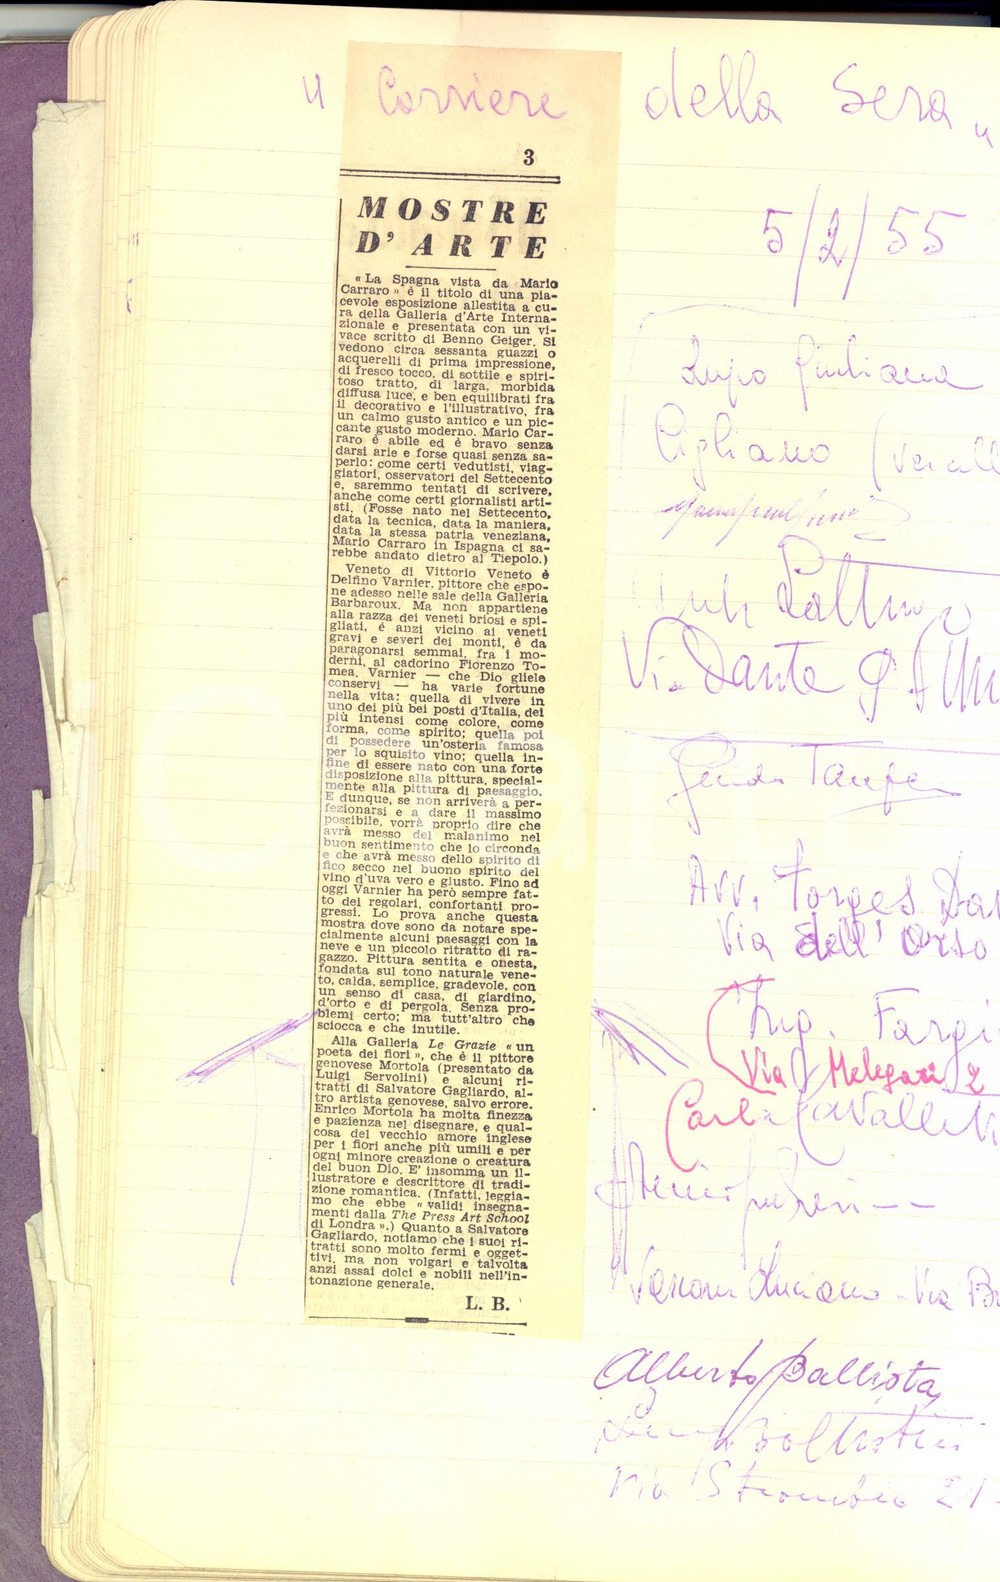 " Corriere della Sera "
3
MOSTRE
D'ARTE
5/2/55
« La Spagna vista da Mario
Carraro » è il titolo di una pia-
cevole esposizione allestita a cu-
ra della Galleria d'Arte Interna-
zionale e presentata con un vi-
vace scritto di Benno Geiger. Si
vedono circa sessanta guazzi o
acquerelli di prima impressione,
di fresco tocco, di sottile e spiri-
toso tratto, di larga, morbida
diffusa luce, e ben equilibrati fra
il decorativo e l'illustrativo, fra
un calmo gusto antico e un pic-
cante gusto moderno. Mario Car-
raro è abile ed è bravo senza
darsi arie e forse quasi senza sa-
perlo: come certi vedutisti, viag-
giatori, osservatori del Settecento
e, saremmo tentati di scrivere,
anche come certi giornalisti arti-
sti. (Fosse nato nel Settecento,
data la tecnica, data la maniera,
data la stessa patria veneziana,
Mario Carraro in Ispagna ci sa-
rebbe andato dietro al Tiepolo.)
Veneto di Vittorio Veneto è
Delfino Varnier, pittore che espo-
ne adesso nelle sale della Galleria
Barbaroux. Ma non appartiene
alla razza dei veneti briosi e spi-
gliati, è anzi vicino ai veneti
gravi e severi dei monti, è da
paragonarsi semmai, fra i mo-
derni, al cadorino Fiorenzo To-
mea. Varnier — che Dio gliele
conservi — ha varie fortune
nella vita: quella di vivere in
uno dei più bei posti d'Italia, dei
più intensi come colore, come
forma, come spirito; quella poi
di possedere un'osteria famosa
per lo squisito vino; quella in-
fine di essere nato con una forte
disposizione alla pittura, special-
mente alla pittura di paesaggio.
E dunque, se non arriverà a per-
fezionarsi e a dare il massimo
possibile, vorrà proprio dire che
avrà messo del malanimo nel
buon sentimento che lo circonda
e che avrà messo dello spirito di
fico secco nel buono spirito del
vino d'uva vero e giusto. Fino ad
oggi Varnier ha però sempre fat-
to dei regolari, confortanti pro-
gressi. Lo prova anche questa
mostra dove sono da notare spe-
cialmente alcuni paesaggi con la
neve e un piccolo ritratto di ra-
gazzo. Pittura sentita e onesta,
fondata sul tono naturale vene-
to, calda, semplice, gradevole, con
un senso di casa, di giardino,
d'orto e di pergola. Senza pro-
blemi certo; ma tutt'altro che
sciocca e che inutile.
Alla Galleria Le Grazie « un
poeta dei fiori », che è il pittore
genovese Mortola (presentato da
Luigi Servolini) e alcuni ri-
tratti di Salvatore Gagliardo, al-
tro artista genovese, salvo errore.
Enrico Mortola ha molta finezza
e pazienza nel disegnare, e qual-
cosa del vecchio amore inglese
per i fiori anche più umili e per
ogni minore creazione o creatura
del buon Dio. E' insomma un il-
lustratore e descrittore di tradi-
zione romantica. (Infatti, leggia-
mo che ebbe « validi insegna-
menti dalla The Press Art School
di Londra ».) Quanto a Salvatore
Gagliardo, notiamo che i suoi ri-
tratti sono molto fermi e ogget-
tivi, ma non volgari e talvolta
anzi assai dolci e nobili nell'in-
tonazione generale.
L. B.
Lupo Giuliana
Cigliano
Via Dante 9
Avv. Torges
Via dell' Orso
Ing. Fargi
Via Melegari 2
Carla Cavallett
Luciano - Via
Alberto Ballista
Via 21